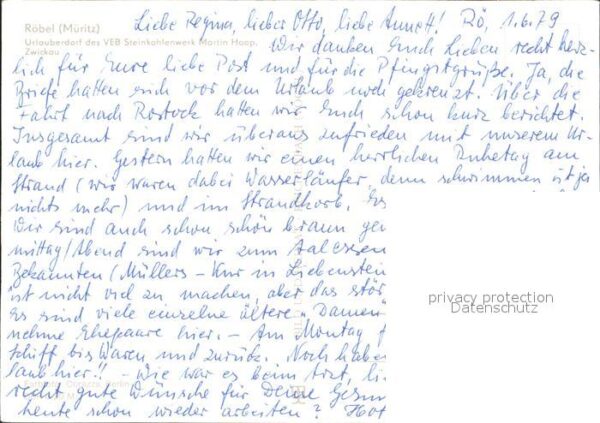 Röbel (Müritz)
Urlauberdorf des VEB Steinkohlenwerk Martin Hoop,
Zwickau
Liebe Regina, lieber Otto, liebe Annett! Rö, 1.6.79
Wir danken Euch Lieben recht herz-
lich für Eure liebe Post und für die Pfingstgrüße. Ja, die
Briefe hatten sich vor dem Urlaub noch gekreuzt. Über die
Fahrt nach Rostock hatten wir Euch schon kurz berichtet.
Insgesamt sind wir überaus zufrieden mit unserem Ur-
laub hier. Gestern hatten wir einen herrlichen Ruhetag am
Strand (wir waren dabei Wasserläufer, denn schwimmen ist ja
nichts mehr) und im Strandkorb. Es
Wir sind auch schon schön braun ge
mittag/Abend sind wir zum Aalessen
Bekannten (Müllers - Kur in Liebenstein
ist nicht viel zu machen, aber das stör
Es sind viele einzelne ältere "Damen
nehme Ehepaare hier. - Am Montag f
schiff bis Waren und zurück. Noch habe
laub hier!! - Wie war es beim Arzt, li
recht gute Wünsche für Deine Gesun
heute schon wieder arbeiten? Hof
privacy protection
Datenschutz